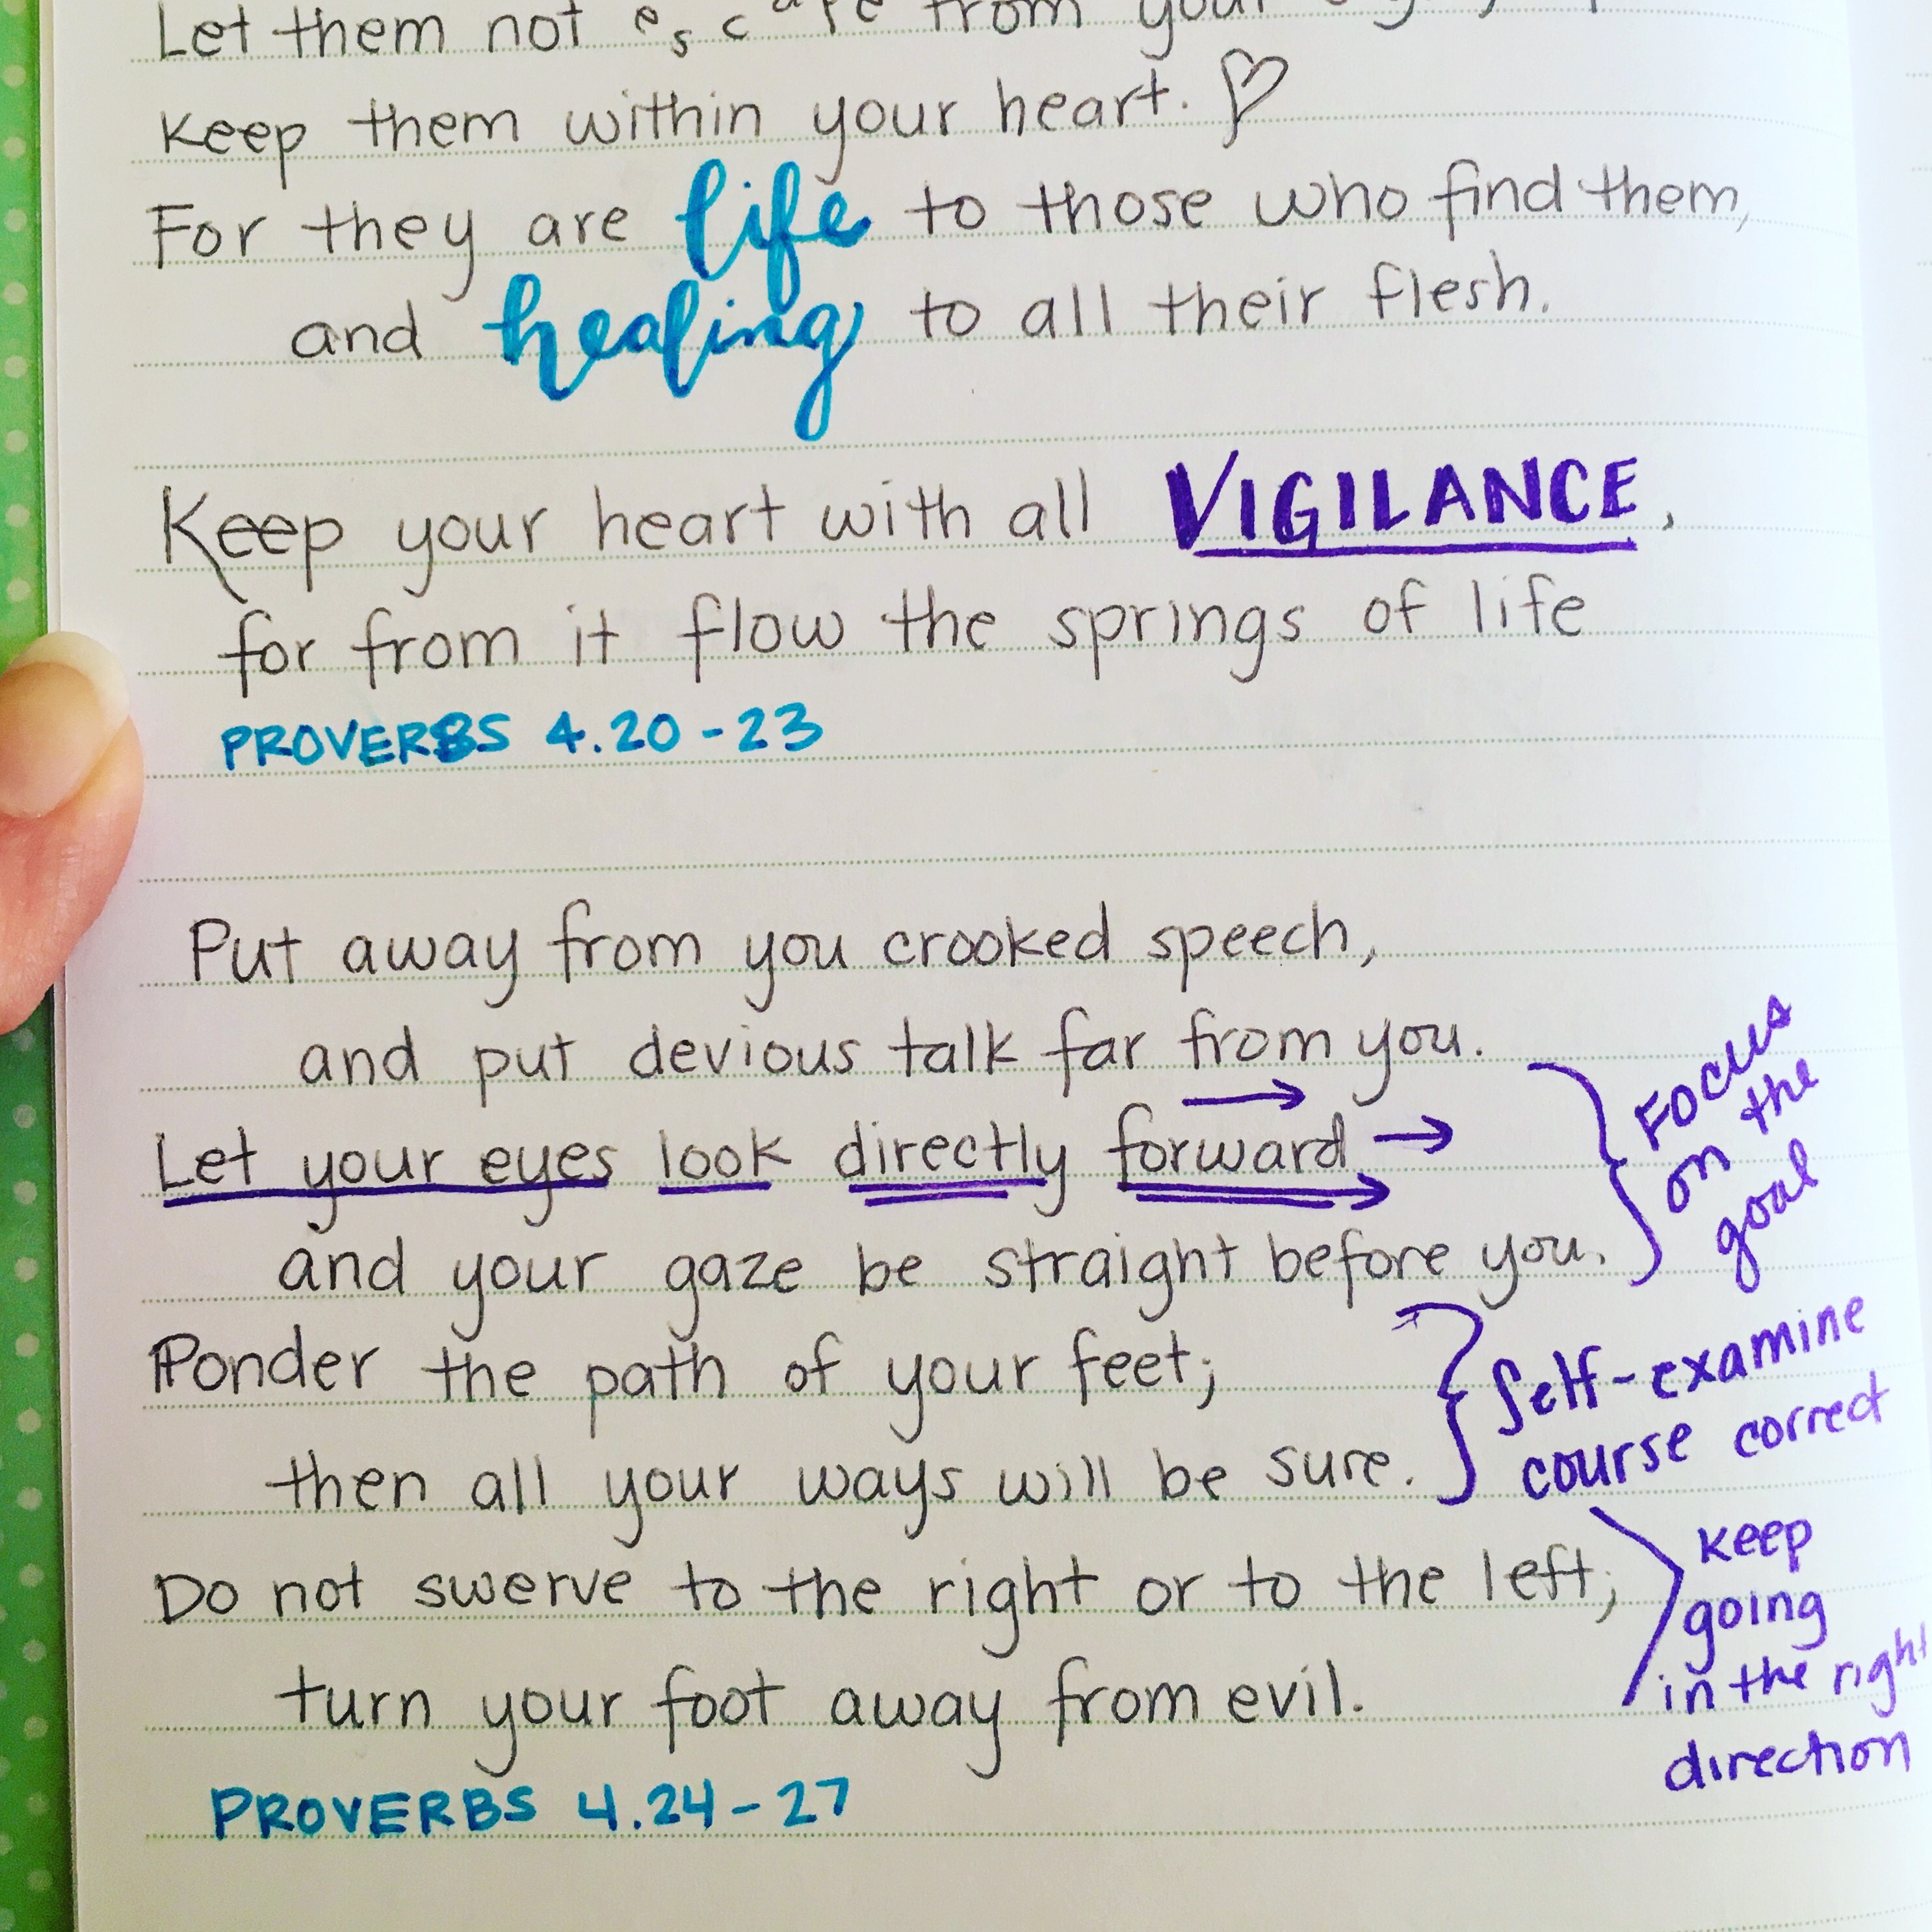 Let them not escape from your
Keep them within your heart.
For they are life to those who find them,
and healing to all their flesh.
Keep your heart with all VIGILANCE,
for from it flow the springs of life
PROVERBS 4.20-23
Put away from you crooked speech,
and put devious talk far from you.
Let your eyes look directly forward
and your gaze be straight before you.
Focus
on the
goal
Ponder the path of your feet;
then all your ways will be sure.
Self-examine
course correct
Do not swerve to the right or to the left;
turn your foot away from evil.
keep
going
in the right
direction
PROVERBS 4.24-27